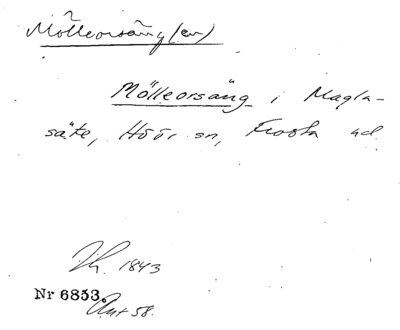 Mölleorsäng(en)
Mölleorsäng i Magla-
säte, Höör sn, Frosta hd
1843
Nr 6853.
Ant 58.